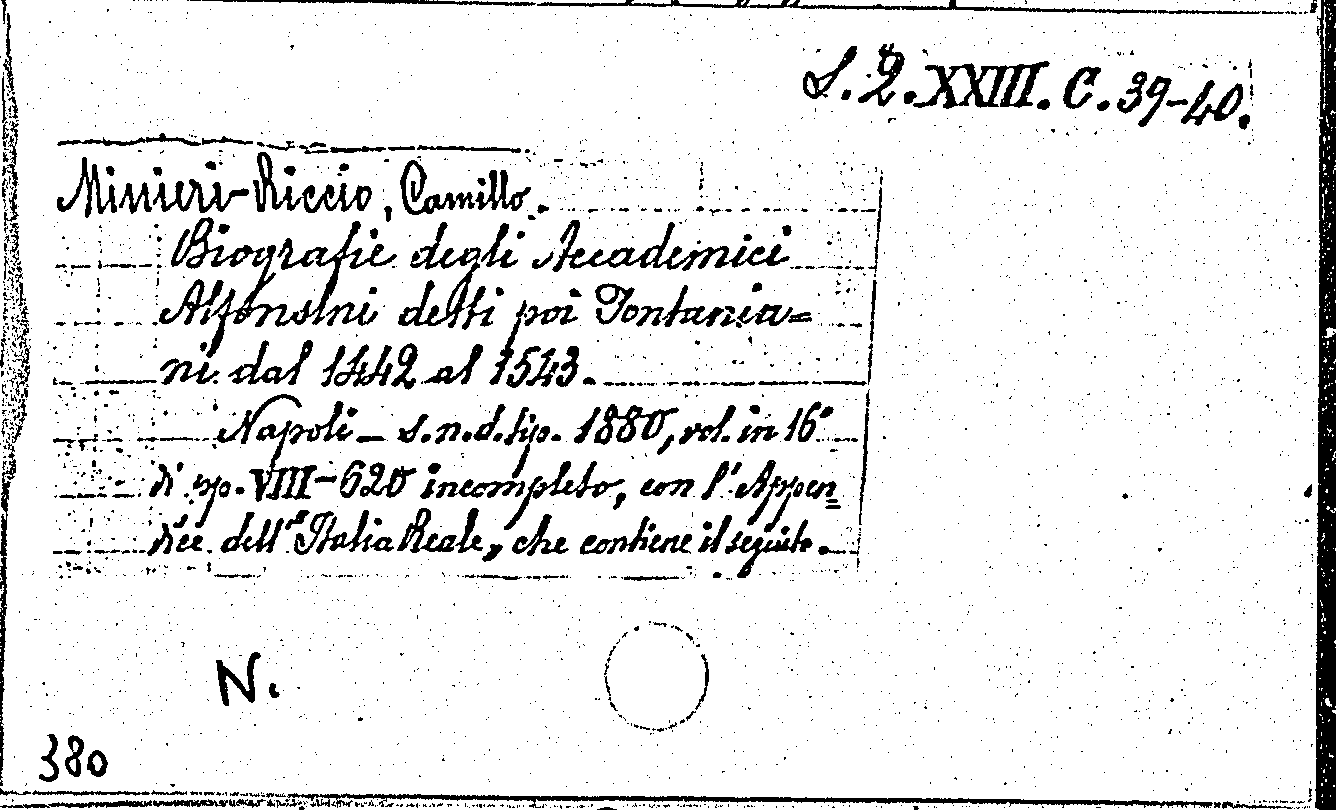 S. 2ª. XXIII. C. 39-40.
Minieri-Riccio, Camillo.
Biografie degli Accademici
Alfonsini detti poi Pontania=
ni dal 1442 al 1543.
Napoli - s.n.d.tip. 1880, vol. in 16°
di pp. VIII-620 incompleto, con l'Appen=
dice dell'"Italia Reale", che contiene il seguito.
N.
380